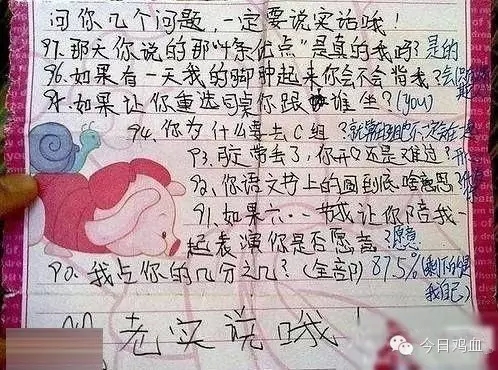 问你几个问题,一定要说实话哦!
97.那天你说的那"十条优点"是真的我吗?是的
96.如果有一天我的脚肿起来你会不会背我?会
95.如果让你重选同桌你跟谁坐?(you)
94.你为什么要去C组?
93.胶带丢了,你开心还是难过?
92.你语文书上的圈到底啥意思?
91.如果六·一节我让你陪我一
起表演你是否愿意?愿意
90.我占你的几分之几?(全部)87.5%(剩下的是
我自己)
老实说哦!
今日鸡血